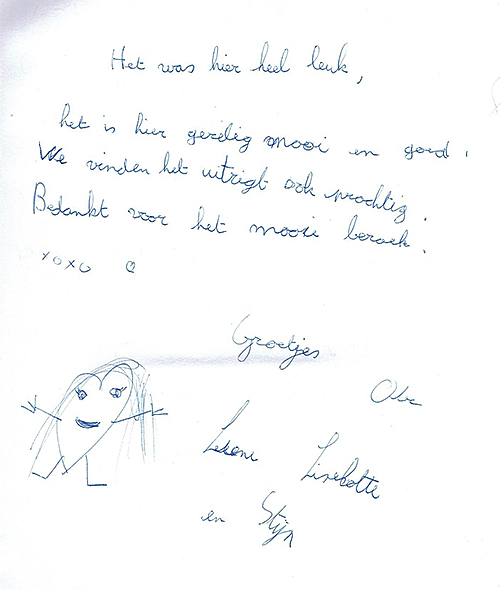 Het was hier heel leuk,
het is hier gezelig mooi en goed.
We vinden het uitzigt ook prachtig.
Bedankt voor het mooie bezoek.
xoxo
Groetjes
Lisebotte
en Stijn